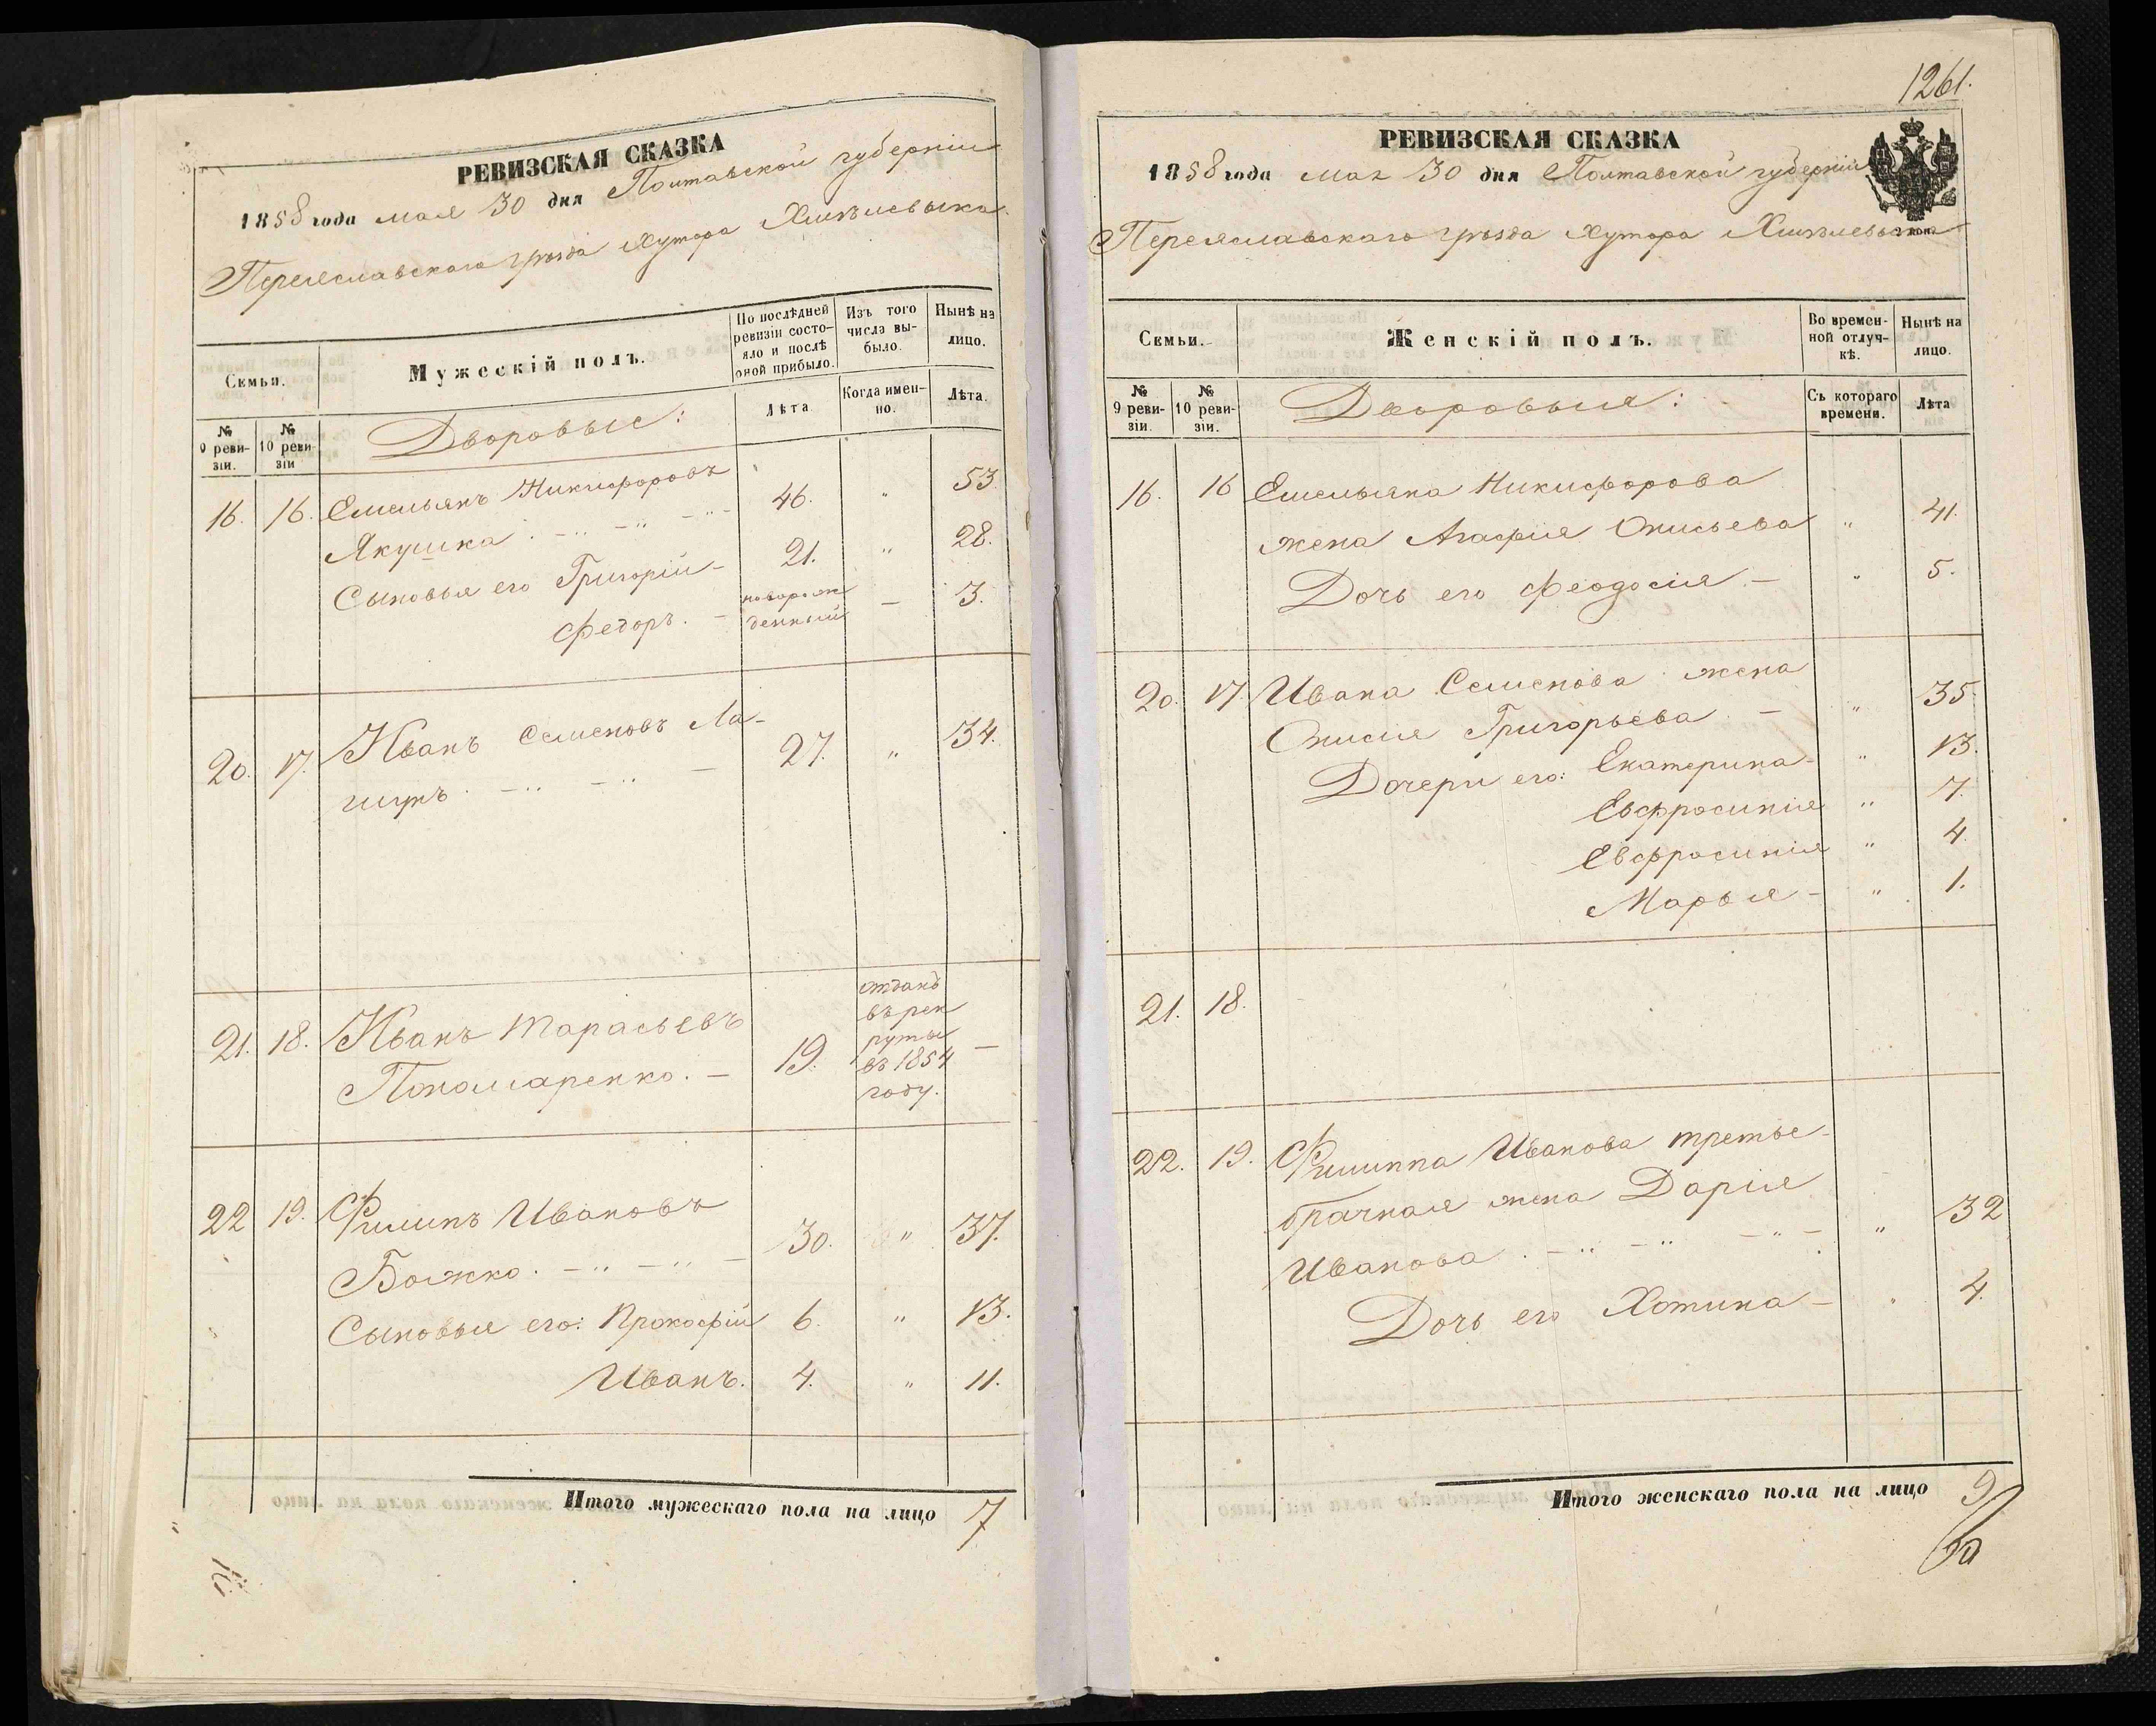 РЕВИЗСКАЯ СКАЗКА
1858 года мая 30 дня Полтавской губерніи
Переяславскаго уѣзда Хутора
Семьи.
Мужескій полъ.
По послѣдней ревизіи состояло и послѣ оной прибыло.
Изъ того числа выбыло.
Нынѣ на лицо.
№ 9 ревизіи.
№ 10 ревизіи
Дворовые:
Лѣта
Когда именно.
Лѣта.
16. 16. Емельянъ Никифоровъ
Якушка. 46. " 53.
Сыновья его Григорій - 21. " 28.
Федоръ. - новорожденный - 3.
20. 17. Иванъ Семеновъ Ла-
гутъ. 27. " 34.
21. 18. Иванъ Тарасьевъ
Пономаренко. - 19. отданъ въ рекруты въ 1854 году. -
22 19. Филипъ Ивановъ
Божко. 30. " 37.
Сыновья его: Прокофій 6. " 13.
Иванъ. 4. " 11.
Итого мужескаго пола на лицо 7
1261.
РЕВИЗСКАЯ СКАЗКА
1858 года мая 30 дня Полтавской губерніи
Переяславскаго уѣзда Хутора
Семьи.
Женскій полъ.
Во временной отлучкѣ.
Нынѣ на лицо.
№ 9 ревизіи.
№ 10 ревизіи.
Дворовыя:
Съ котораго времени.
Лѣта
16. 16 Емельяна Никифорова
жена Агафія Онисьева " 41.
Дочь его Феодосія - " 5.
20. 17. Ивана Семенова жена
Онисія Григорьева - " 35.
Дочери его: Екатерина - " 13.
Евфросинія " 7.
Евфросинія " 4.
Марья - " 1.
21. 18.
22. 19. Филиппа Иванова третье-
брачная жена Дарія
Иванова. " 32
Дочь его Хотина - " 4.
Итого женскаго пола на лицо 9